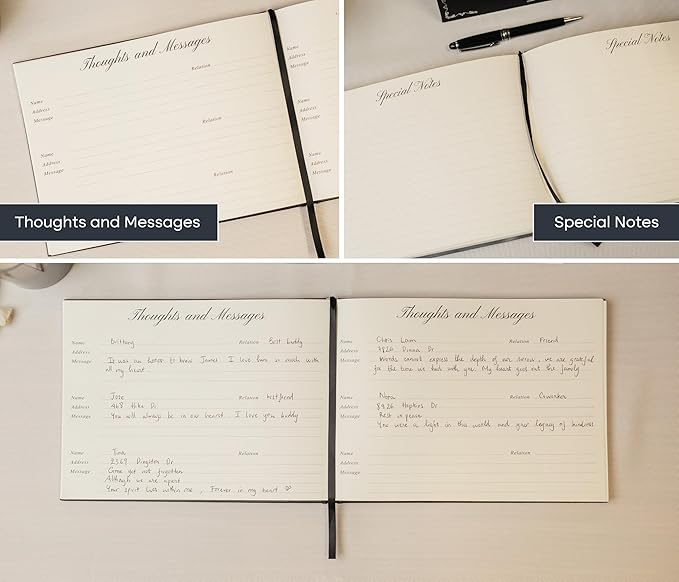 Thoughts and Messages
Relation
Name
Address
Message
Relation
Name
Address
Message
Relation
Name
Address
Message
Name
Address
Message
Name
Address
Message
Thoughts and Messages
Special Notes
Special Notes
Special Notes
Thoughts and Messages
Name Brittany Relation Best buddy
Address
Message It was an honor to know James I love him so much with
all my heart
Name Jose Relation
Address 468 Pike Dr.
Message You will always be in our heart I love you buddy
Name Relation
Address 2369 Dr
Message Gone but not forgotten
Although we are apart
Your spirit lives within me, Forever in my heart
Thoughts and Messages
Name Chris Relation Friend
Address 3826 Dr
Message Words cannot express the depth of our sorrow, we are grateful
for the time we had with you. My heart goes out the family
Name Nora Relation Coworker
Address 8926 Hopkins Dr
Message Rest in peace
You were a light in this world and your legacy of kindness
Name Relation
Address
Message